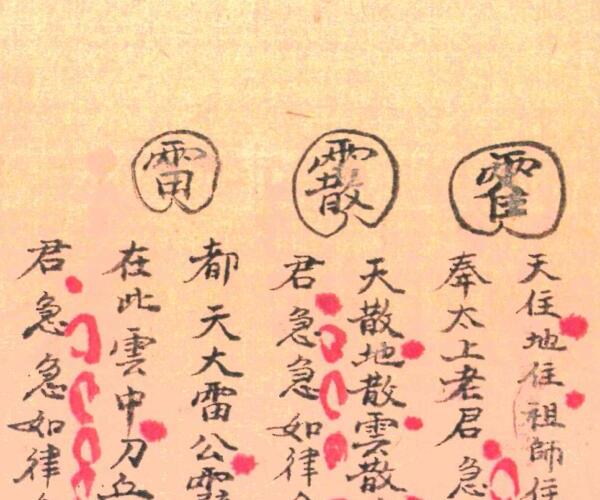 天住地住祖師住
奉太上老君急
霰
天散地散雲散
君急急如律
雷
都天大雷公
在此雲中刀
君急急如律